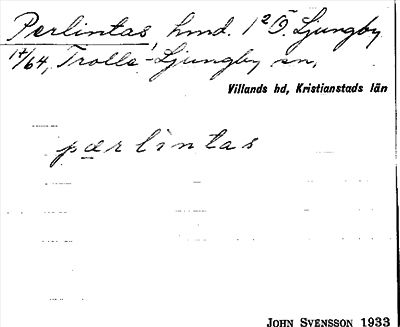 Perlintas, hmd. 1²⁄5. Ljungby
17/64, Trolle-Ljungby sn,
Villands hd, Kristianstads län
pærlintas
JOHN SVENSSON 1933